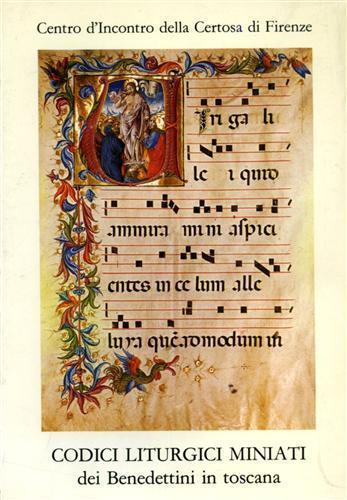 Centro d'Incontro della Certosa di Firenze
iri gali
lei quid
ammira mini aspici
entes in ce lum alle
luya quēadmodum in
CODICI LITURGICI MINIATI
dei Benedettini in toscana